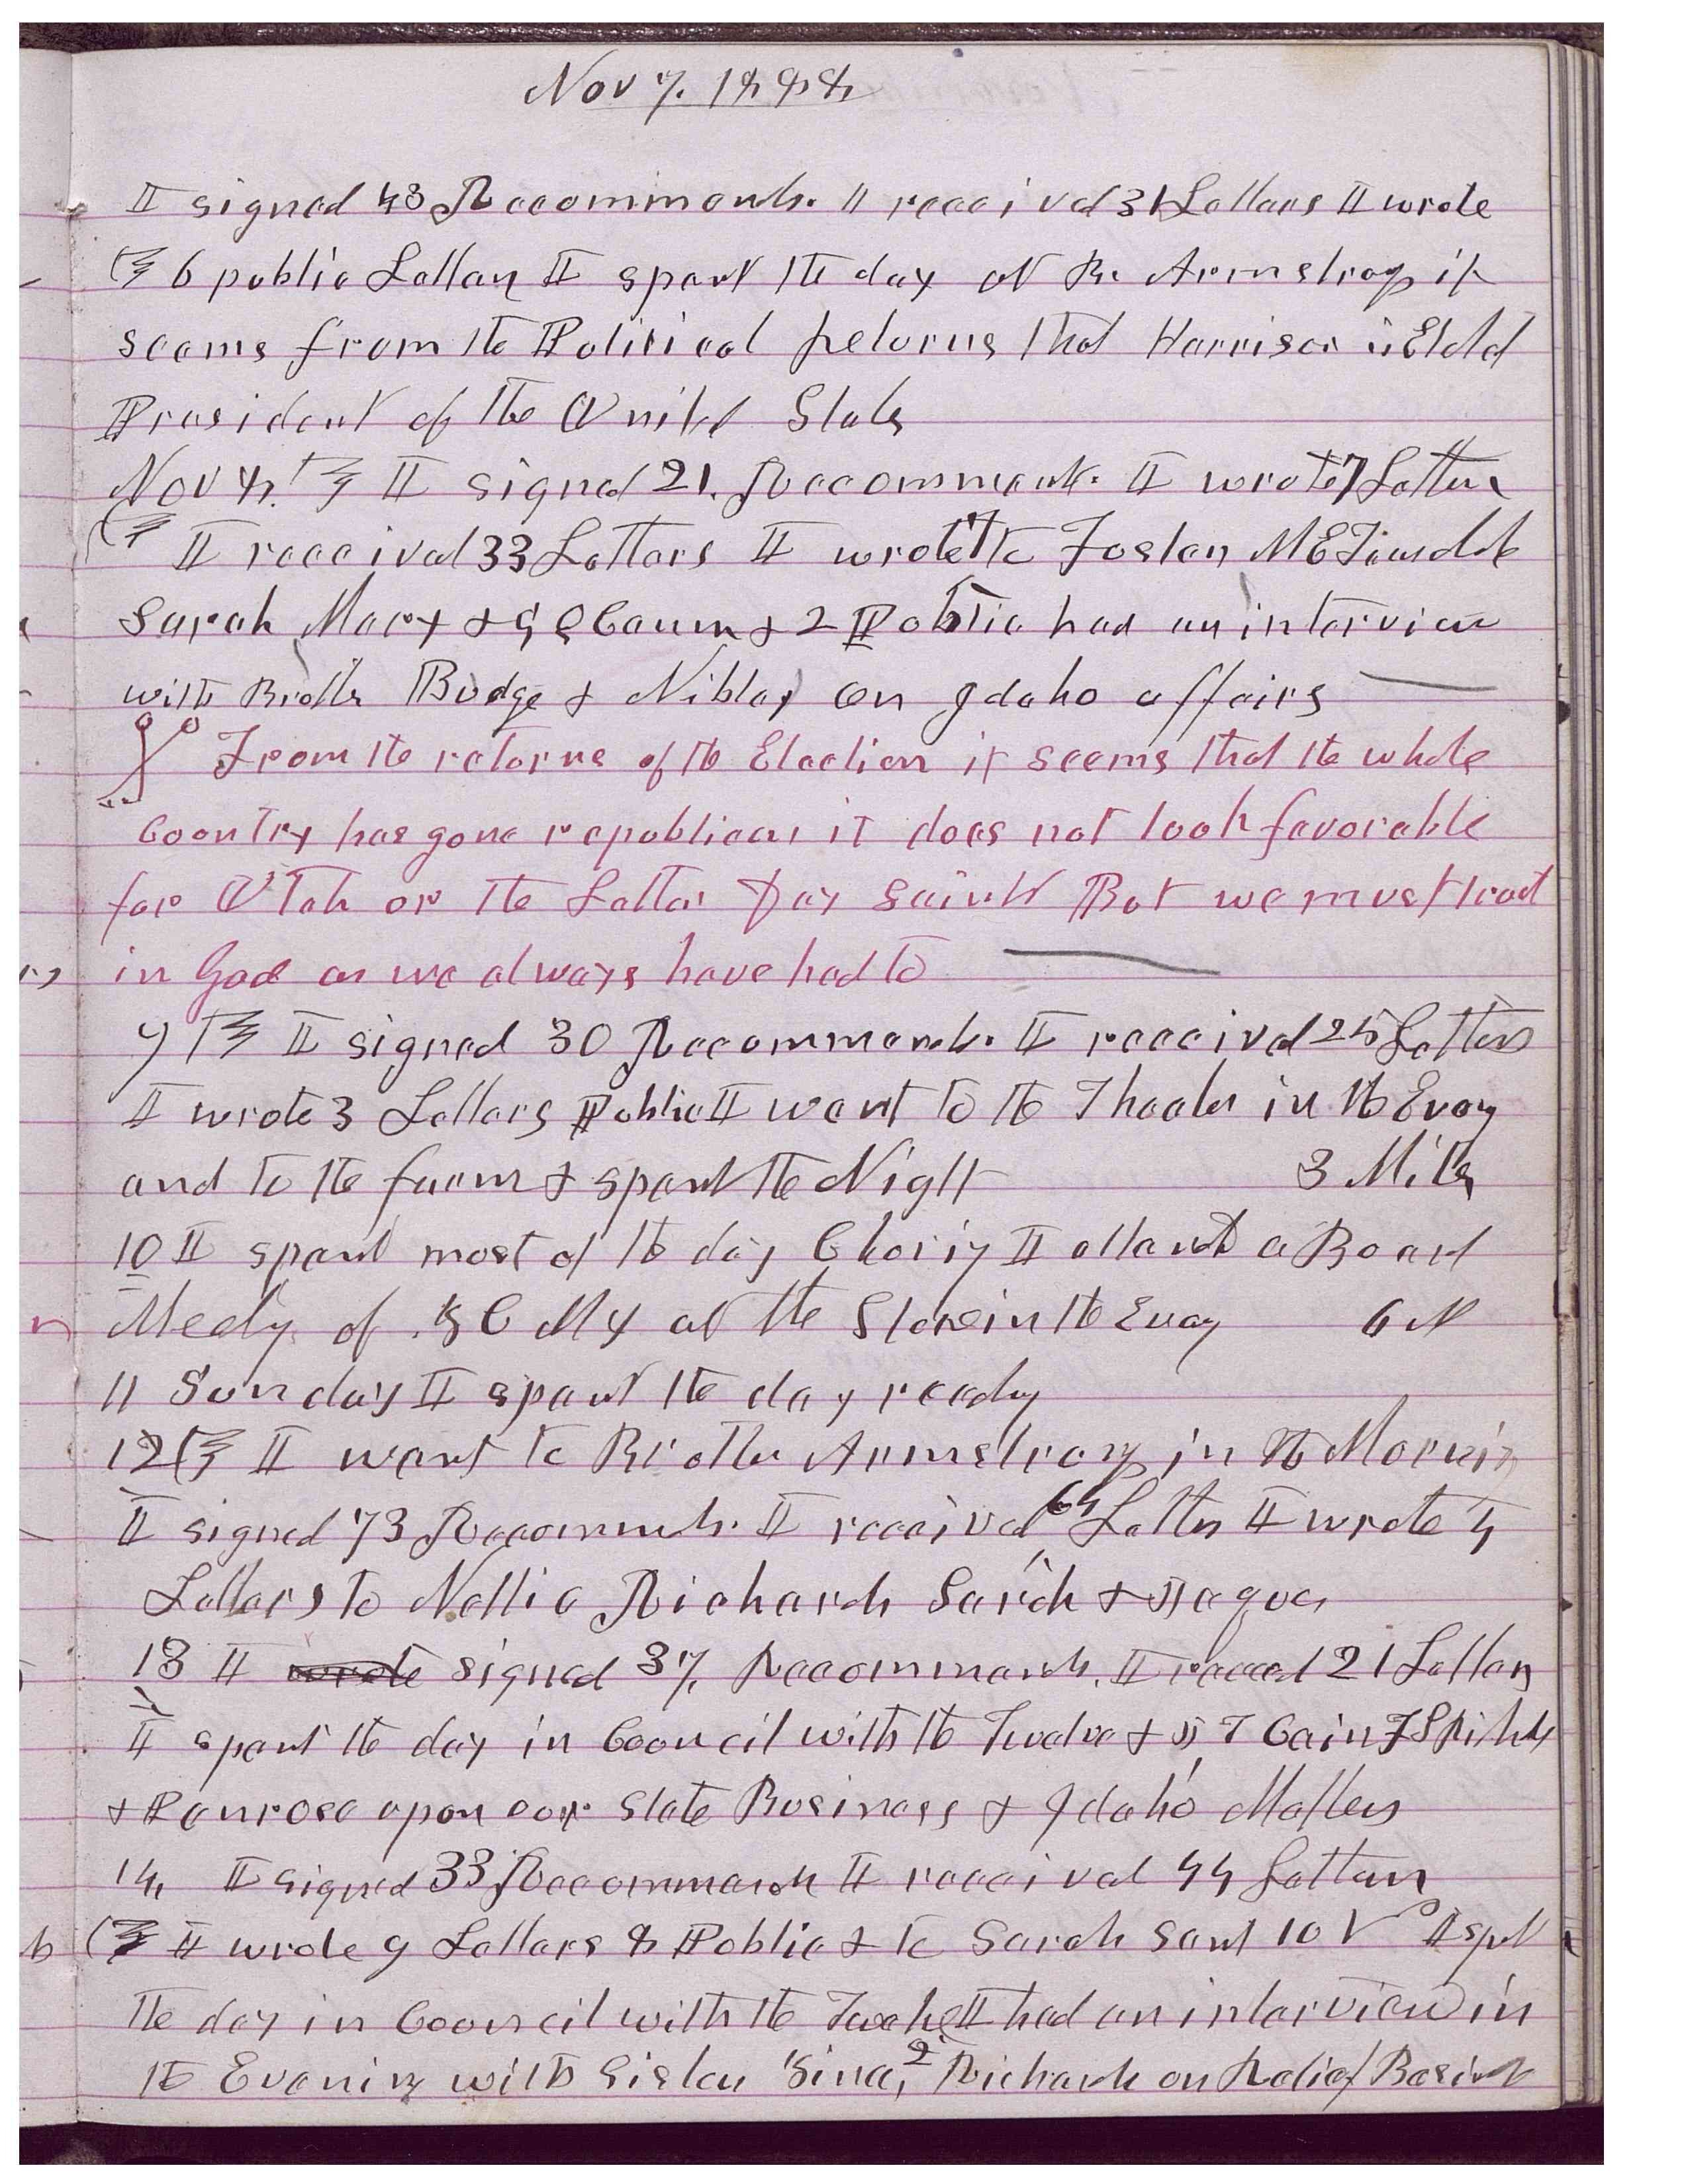 Nov 7. 1888
I signed 43 Recommends. I received 31 Letters I wrote
6 public Letters I spent the day at Br Armstrong it
seems from the Political Returns that Harrison is Eletd
President of the United States
Nov 8. I signed 21. Recommends. I wrote 7 Letters
I received 33 Letters I wrote to Foster M E Tiesdale
Sarah Mary & & 2 Public had an interview
with Brothr Budge & Nibley on Idaho affairs
From the returns of the Election it seems that the whole
Country has gone republican it does not look favorable
for Utah or the Latter Day Saints But we must trust
in God as we always have had to
9 I signed 30 Recommends. I received 25 Letters
I wrote 3 Letters Public I went to the Theater in the Eveng
and to the farm & spent the Night 3 Miles
10 I spent most of the day Choring I attended a Board
Meeting of Z C M I at the Store in the Eveng 6 M
11 Sunday I spent the day reading
12 I went to Brother Armstrong in the Morning
I signed 73 Recommends. I received 64 Letters I wrote 4
Letters to Nellie Richards Sarah & Teague
13 I wrote signed 37 Recommends. I received 21 Letters
I spent the day in Council with the Twelve & J T Cain F S Richards
& Penrose upon our State Business & Idaho Matters
14 I signed 33 Recommends I received 44 Letters
I wrote 9 Letters 8 Public & to Sarah sent 10 I spent
the day in Council with the Twelve I had an interview in
the Evening with Sister Richards on Relief